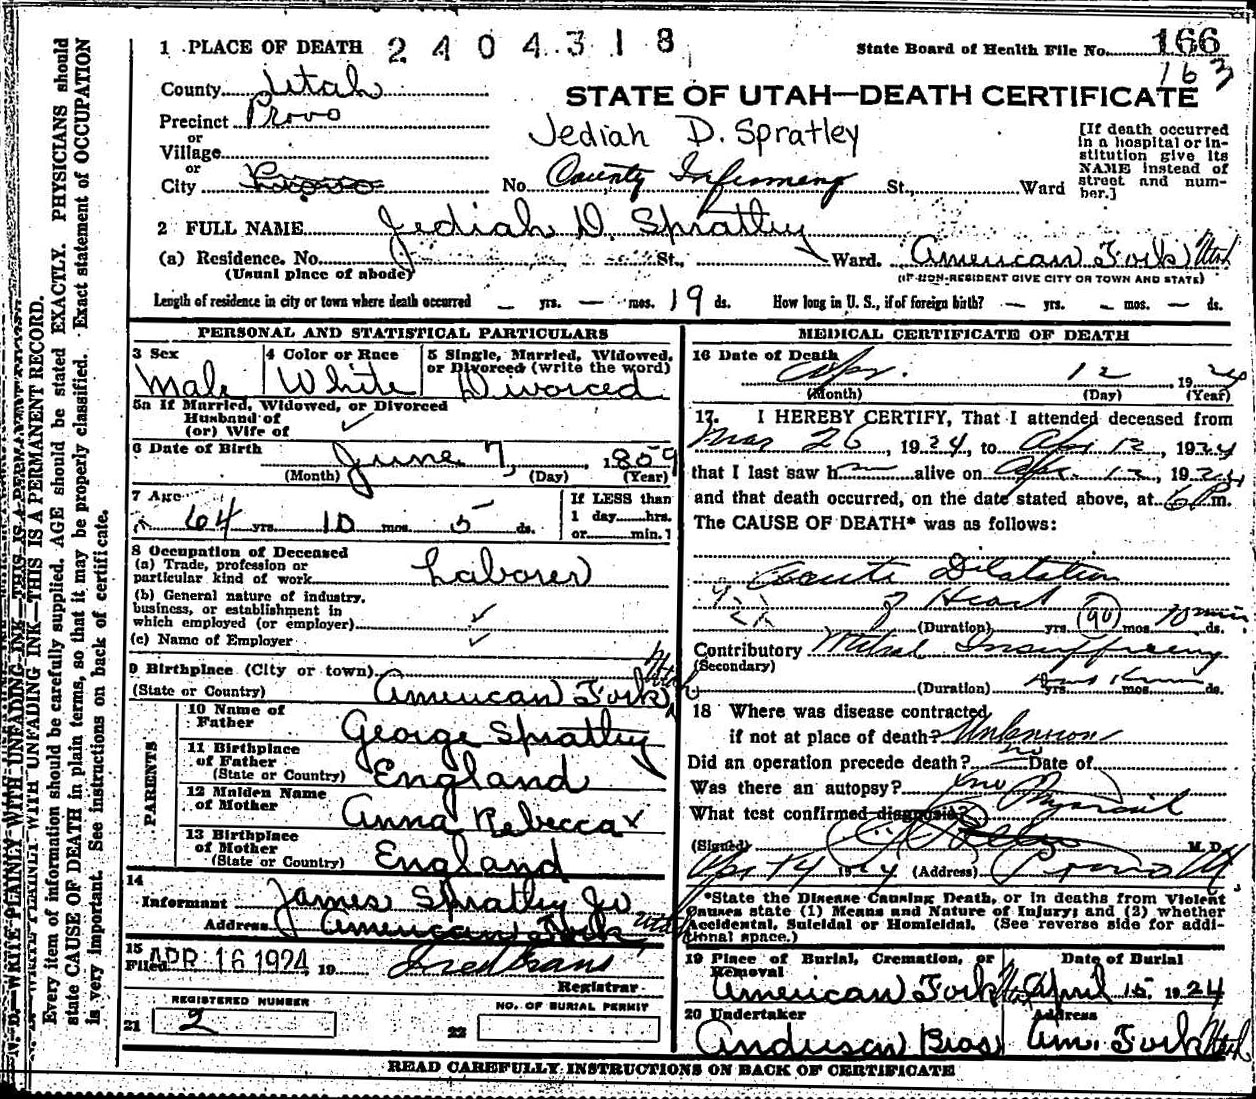 1 PLACE OF DEATH 2404318
State Board of Health File No. 166
163
County Utah
STATE OF UTAH—DEATH CERTIFICATE
Precinct Provo
or
Village
Jediah D. Spratley
[If death occurred in a hospital or institution give its NAME instead of street and number.]
or
City Provo No County Infirmary St., Ward
2 FULL NAME Jediah D. Spratley
(a) Residence. No. St., Ward. American Fork Utah
(Usual place of abode) (IF NON-RESIDENT GIVE CITY OR TOWN AND STATE)
Length of residence in city or town where death occurred — yrs. — mos. 19 ds. How long in U. S., if of foreign birth? — yrs. — mos. — ds.
PERSONAL AND STATISTICAL PARTICULARS
3 Sex
Male
4 Color or Race
White
5 Single, Married, Widowed, or Divorced (write the word)
Divorced
5a If Married, Widowed, or Divorced
Husband of
(or) Wife of
6 Date of Birth
June 7, 1859
(Month) (Day) (Year)
7 Age
64 yrs. 10 mos. 5 ds.
If LESS than
1 day hrs.
or min.
8 Occupation of Deceased
(a) Trade, profession or
particular kind of work Laborer
(b) General nature of industry,
business, or establishment in
which employed (or employer)
(c) Name of Employer
9 Birthplace (City or town)
(State or Country) American Fork Utah
PARENTS
10 Name of
Father George Spratley
11 Birthplace
of Father
(State or Country) England
12 Maiden Name
of Mother Anna Rebecca x
13 Birthplace
of Mother
(State or Country) England
14
Informant James Spratley Jr
Address American Fork Utah
15
Filed APR 16 1924, 19 Fred Evans
Registrar
REGISTERED NUMBER
21 2
NO. OF BURIAL PERMIT
22
MEDICAL CERTIFICATE OF DEATH
16 Date of Death
Apr. 12, 1924
(Month) (Day) (Year)
17. I HEREBY CERTIFY, That I attended deceased from
Mar 26, 1924, to Apr 12, 1924
that I last saw him alive on Apr 12, 1924
and that death occurred, on the date stated above, at 6 P m.
The CAUSE OF DEATH* was as follows:
Acute Dilatation
of Heart
(Duration) yrs. 90 mos. 10 min ds.
Contributory Mitral Insufficiency
(Secondary)
(Duration) yrs. mos. ds.
18 Where was disease contracted
if not at place of death? Unknown
Did an operation precede death? no Date of
Was there an autopsy? no
What test confirmed diagnosis? Physical
(Signed) M. D.
Apr 14 1924 (Address) Provo Ut
*State the Disease Causing Death, or in deaths from Violent
Causes state (1) Means and Nature of Injury; and (2) whether
Accidental, Suicidal or Homicidal. (See reverse side for addi-
tional space.)
19 Place of Burial, Cremation, or
Removal
American Fork Utah
Date of Burial
April 15 1924
20 Undertaker
Anderson Bros
Address
Am. Fork Utah
READ CAREFULLY INSTRUCTIONS ON BACK OF CERTIFICATE
N. B.—WRITE PLAINLY WITH UNFADING INK—THIS IS A PERMANENT RECORD.
Every item of information should be carefully supplied. AGE should be stated EXACTLY. PHYSICIANS should
state CAUSE OF DEATH in plain terms, so that it may be properly classified. Exact statement of OCCUPATION
is very important. See instructions on back of certificate.